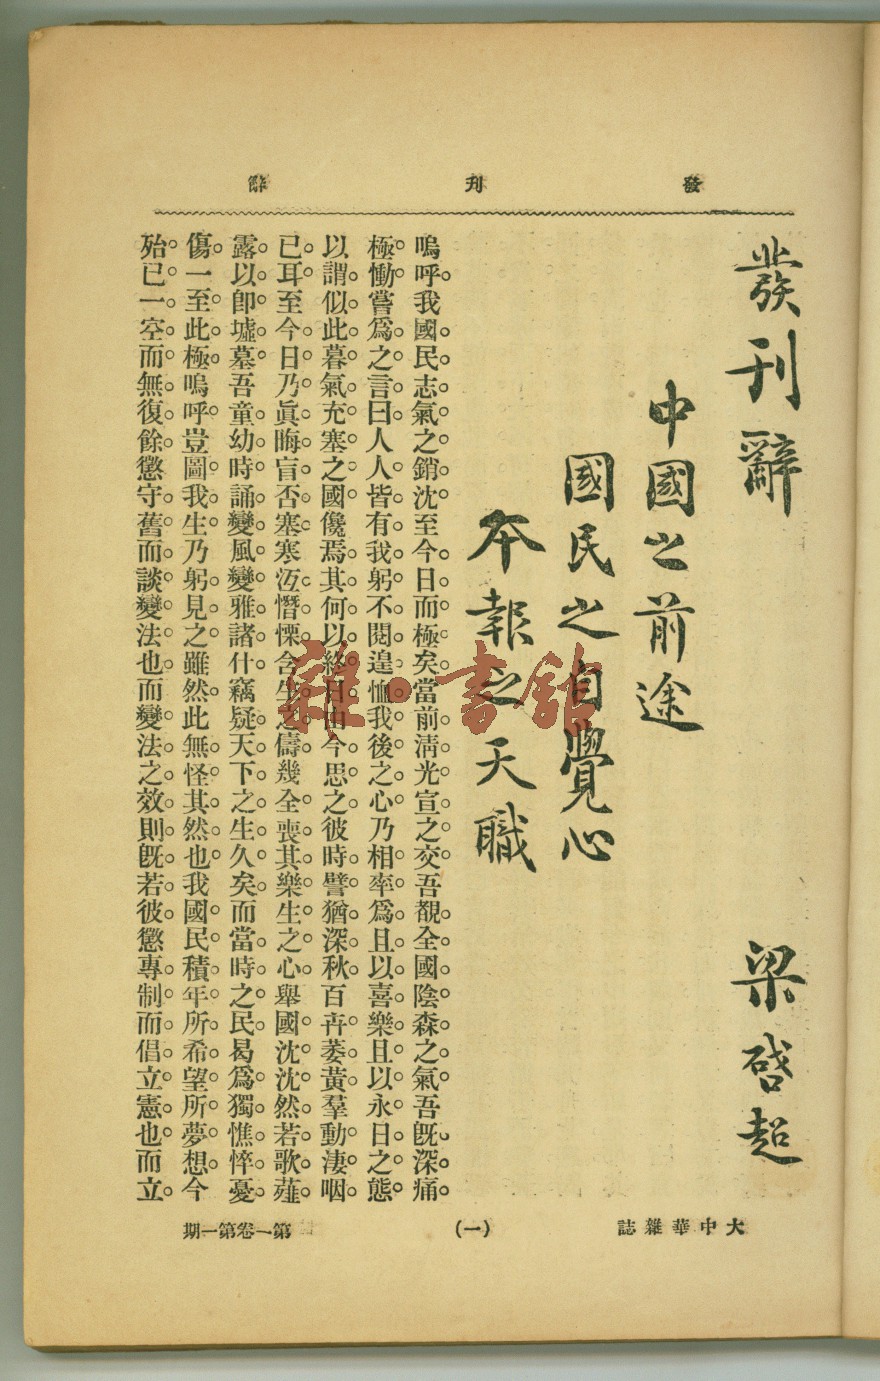 發刊辭
發刊辭
梁啓超
中國之前途
國民之自覺心
本報之天職
嗚呼我國民志氣之銷沈至今日而極矣當前淸光宣之交吾覩全國陰森之氣吾旣深痛
極慟嘗爲之言曰人人皆有我躬不閱遑恤我後之心乃相率爲且以喜樂且以永日之態
以謂似此暮氣充塞之國儳焉其何以終日由今思之彼時譬猶深秋百卉萎黃羣動淒咽
已耳至今日乃眞晦盲否塞寒沍憯慄含生之儔幾全喪其樂生之心舉國沈沈然若歌薤
露以卽墟墓吾童幼時誦變風變雅諸什竊疑天下之生久矣而當時之民曷爲獨憔悴憂
傷一至此極嗚呼豈圖我生乃躬見之雖然此無怪其然也我國民積年所希望所夢想今
殆已一空而無復餘懲守舊而談變法也而變法之效則旣若彼懲專制而倡立憲也而立
大中華雜誌
(一)
第一卷第一期
雜·書館